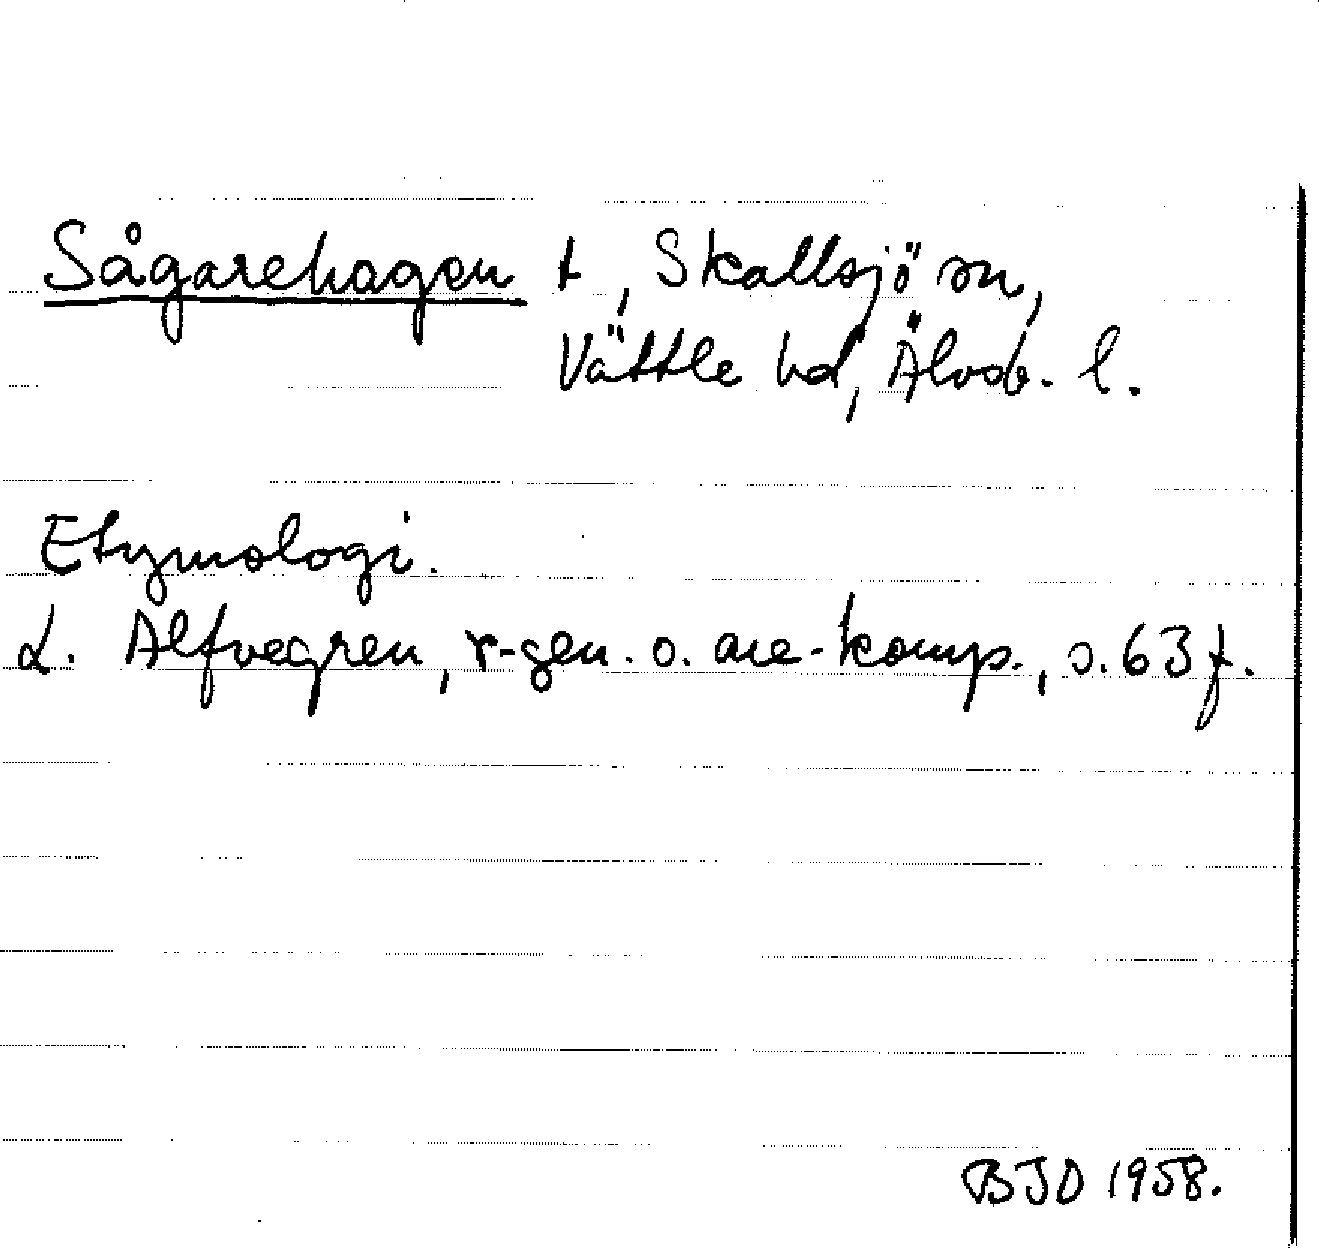 Sågarehagen t, Skallsjö sn,
Vättle hd, Älvsb. l.
Etymologi.
L. Alfvegren, r-gen. o. are-komp., s. 63 f.
BJD 1958.